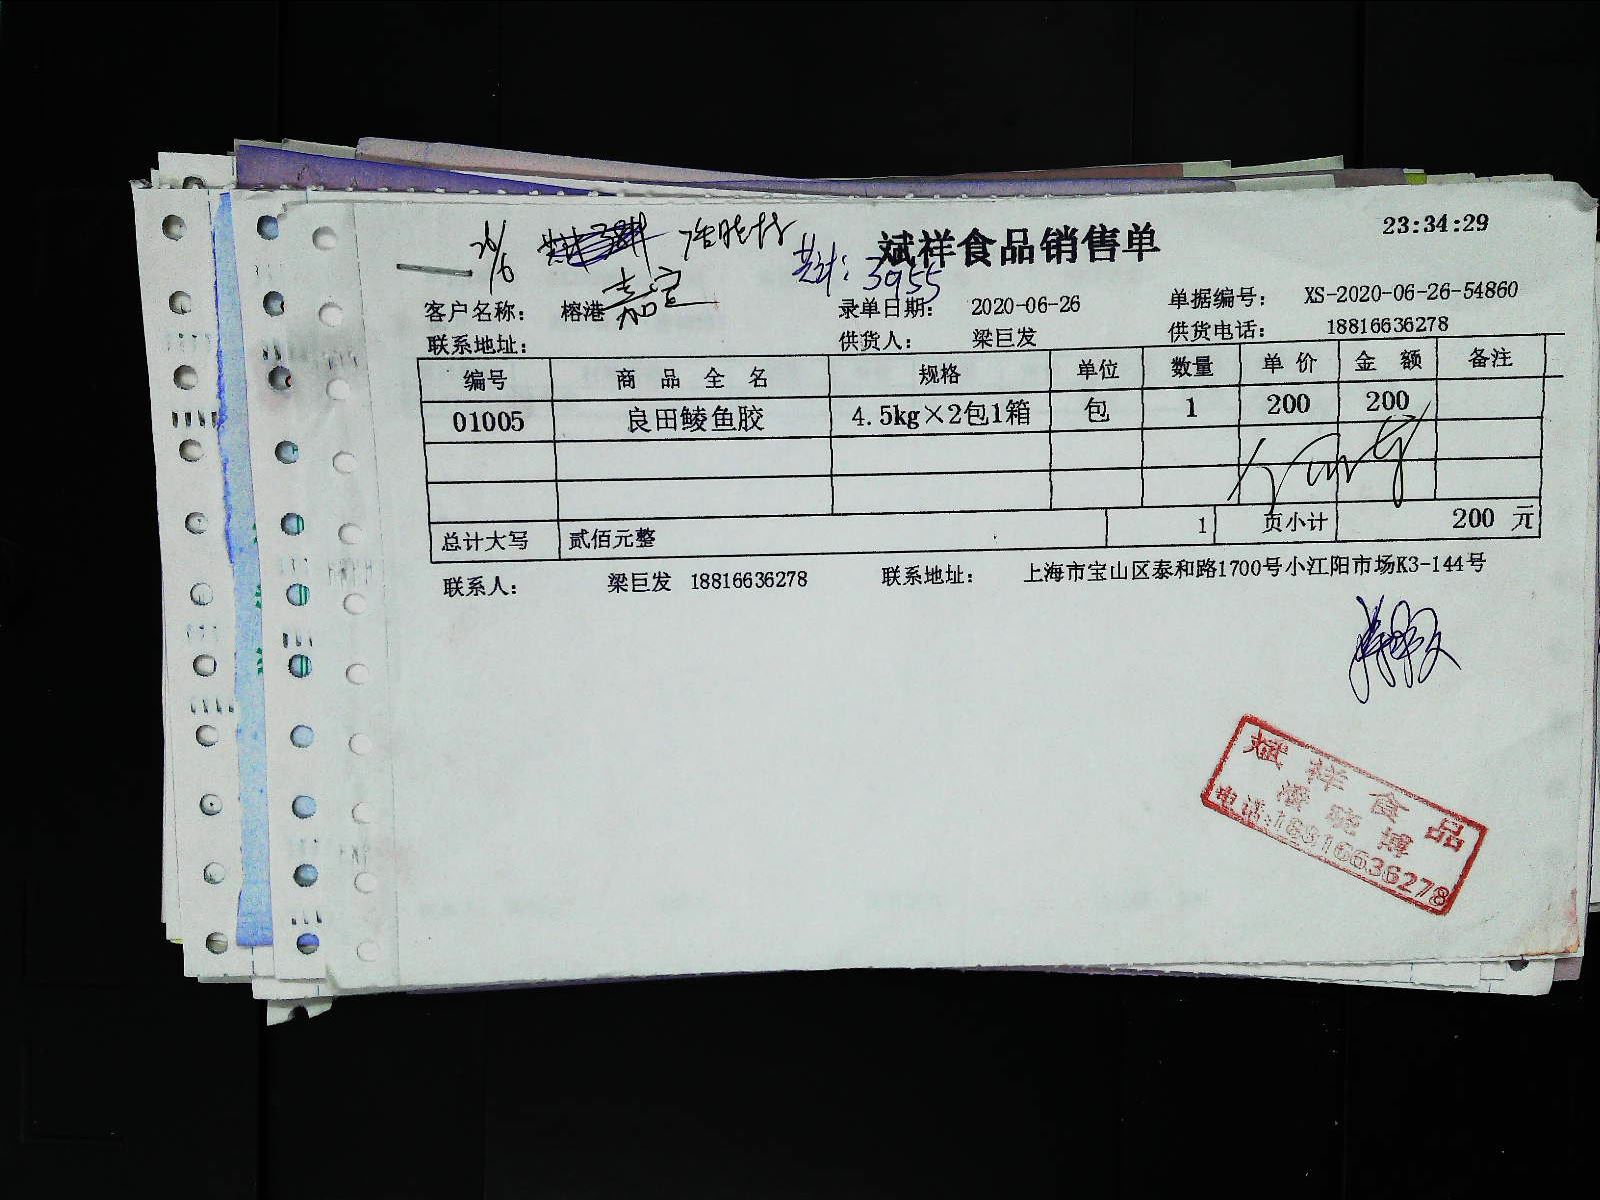 23:34:29
斌祥食品销售单
26/6
共计：3955
客户名称： 榕港 嘉定 录单日期： 2020-06-26 单据编号： XS-2020-06-26-54860
联系地址： 供货人： 梁巨发 供货电话： 18816636278
编号 商品全名 规格 单位 数量 单价 金额 备注
01005 良田鲮鱼胶 4.5kg×2包1箱 包 1 200 200
总计大写 贰佰元整 1 页小计 200 元
联系人： 梁巨发 18816636278 联系地址： 上海市宝山区泰和路1700号小江阳市场K3-144号
斌祥食品
电话:18816636278